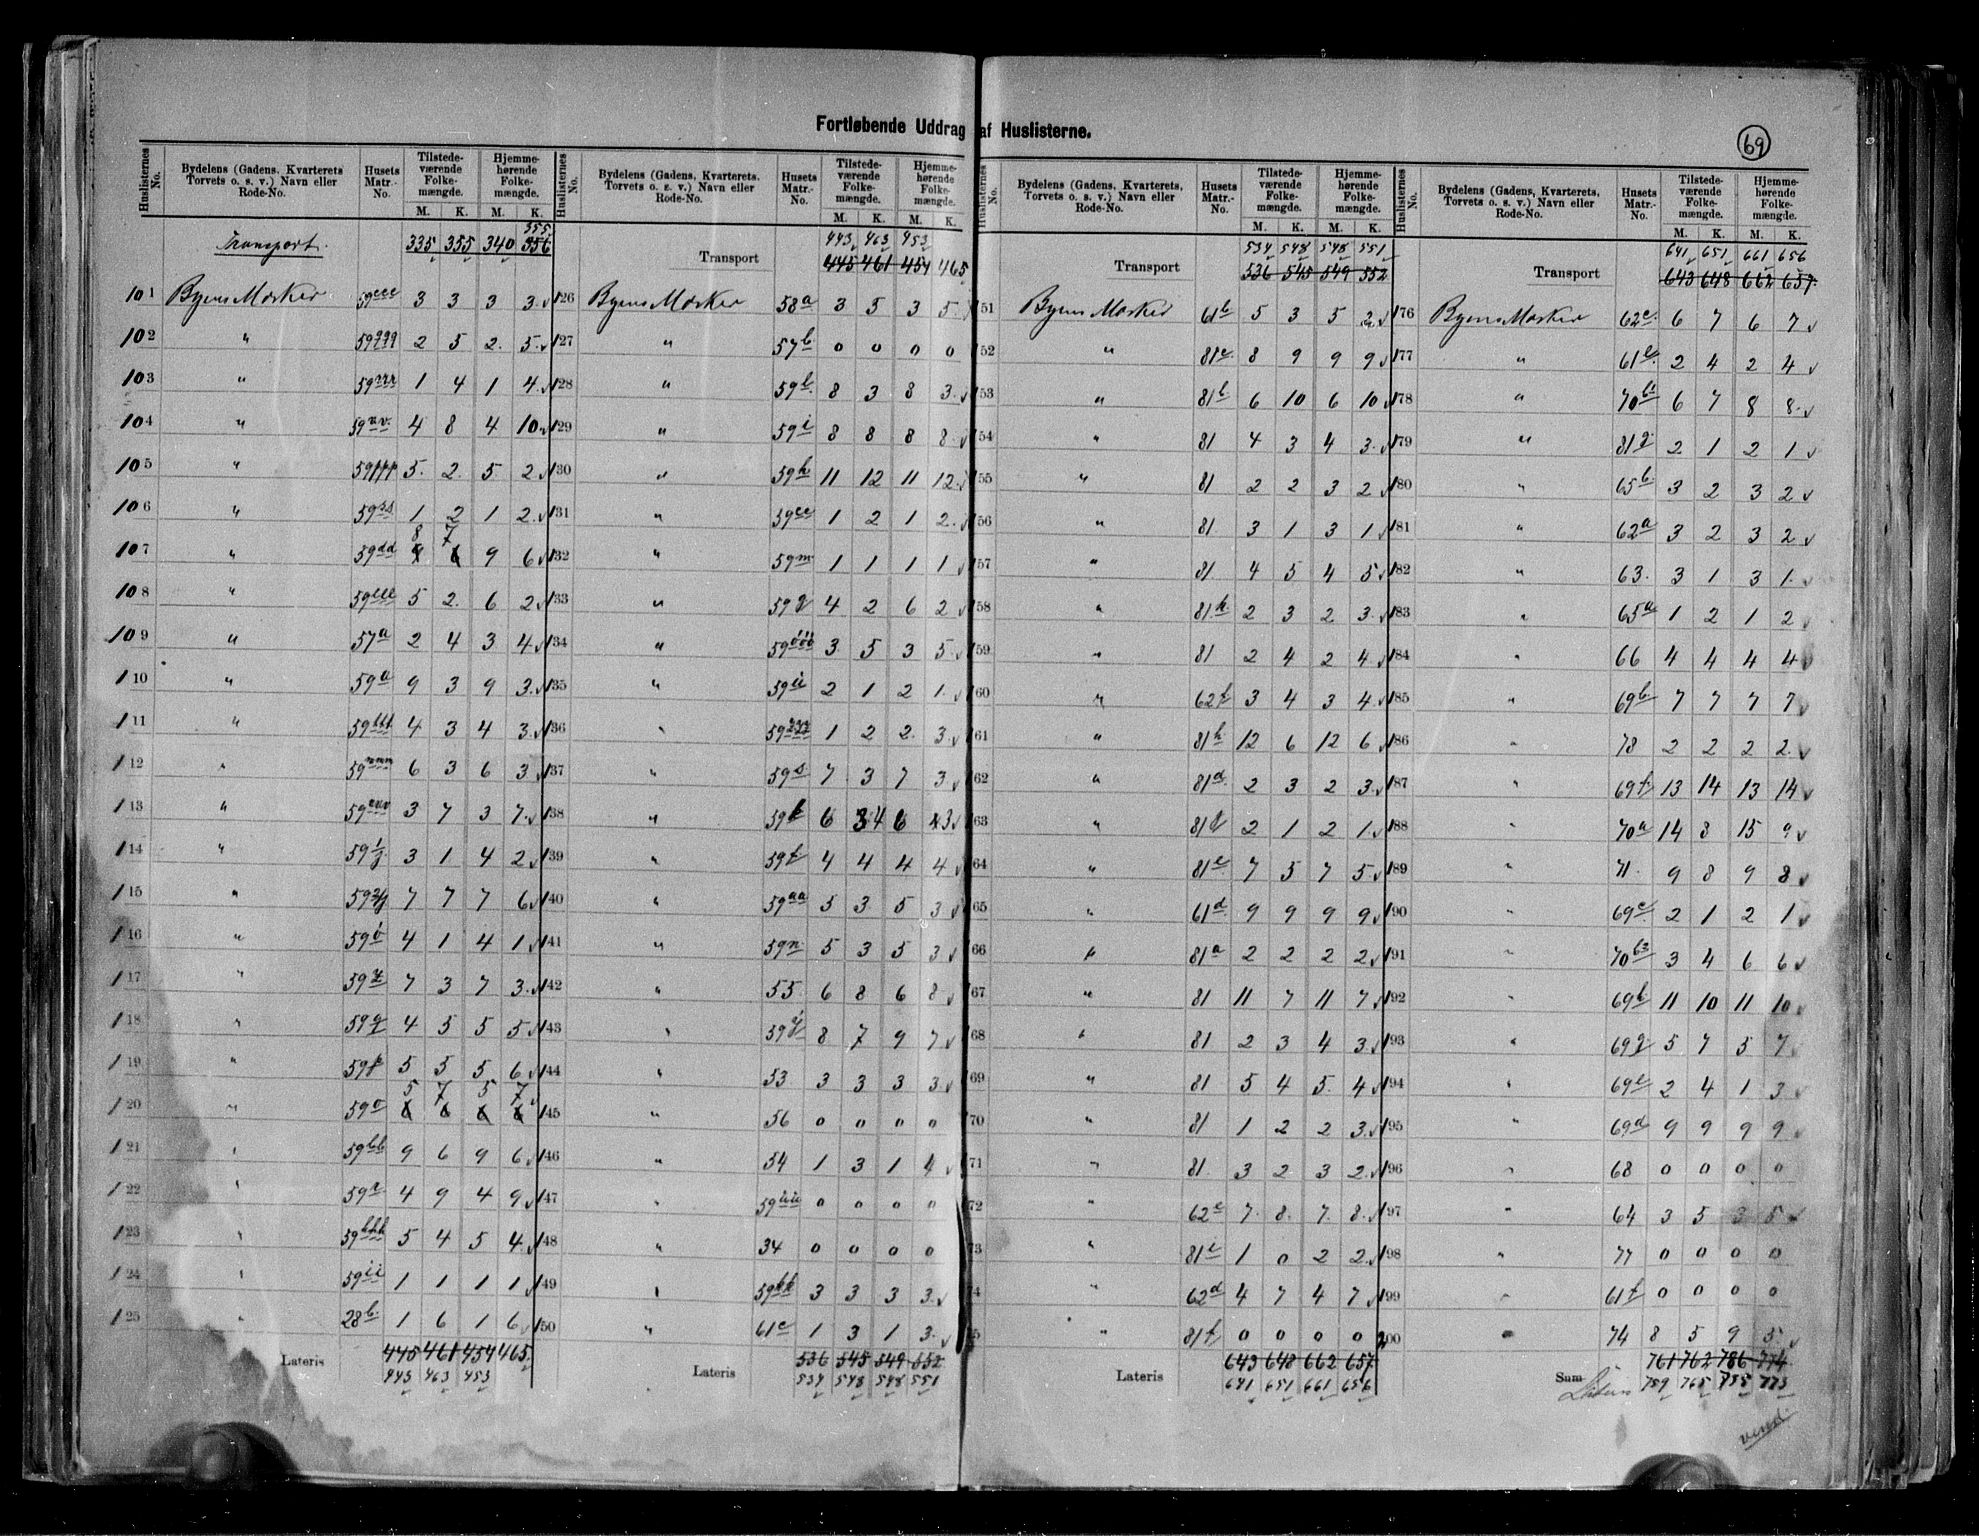 Fortløbende Uddrag af Huslisterne.
69
Huslisternes No. Bydelens (Gadens, Kvarterets Torvets o. s. v.) Navn eller Rode-No. Husets Matr.-No. Tilstede-værende Folke-mængde. M. K. Hjemme-hørende Folke-mængde. M. K.
355
Transport. 335 355 340 356
101 Byens Marker 59eee 3 3 3 3
102 " 59qqq 2 5 2 5
103 " 59rrr 1 4 1 4
104 " 59uv 4 8 4 10
105 " 59ppp 5 2 5 2
106 " 59ss 1 2 1 2
8 7
107 " 59dd 9 6 9 6
108 " 59eee 5 2 6 2
109 " 57a 2 4 3 4
110 " 59a 9 3 9 3
111 " 59ttt 4 3 4 3
112 " 59mmm 6 3 6 3
113 " 59 3 7 3 7
114 " 59 3 1 4 2
115 " 59 7 7 7 6
116 " 59ö 4 1 4 1
117 " 59 7 3 7 3
118 " 59q 4 5 5 5
119 " 59p 5 5 5 6
5 7 5 7
120 " 59o 6 6 6 6
121 " 59bb 9 6 9 6
122 " 59r 4 9 4 9
123 " 59kkk 5 4 5 4
124 " 59ii 1 1 1 1
125 " 28b 1 6 1 6
Lateris 445 461 454 465
443 463 453
Huslisternes No. Bydelens (Gadens, Kvarterets, Torvets o. s. v.) Navn eller Rode-No. Husets Matr.-No. Tilstede-værende Folke-mængde. M. K. Hjemme-hørende Folke-mængde. M. K.
443 463 453
Transport 445 461 454 465
126 Byens Marker 58a 3 5 3 5
127 " 57b 0 0 0 0
128 " 59b 8 3 8 3
129 " 59i 8 8 8 8
130 " 59h 11 12 11 12
131 " 59cc 1 2 1 2
132 " 59m 1 1 1 1
133 " 59g 4 2 6 2
134 " 59ööö 3 5 3 5
135 " 59ii 2 1 2 1
136 " 59zzz 1 2 2 3
137 " 59s 7 3 7 3
138 " 59k 6 3 4 6 4 3
139 " 59t 4 4 4 4
140 " 59aa 5 3 5 3
141 " 59n 5 3 5 3
142 " 55 6 8 6 8
143 " 59 8 7 9 7
144 " 53 3 3 3 3
145 " 56 0 0 0 0
146 " 54 1 3 1 4
147 " 59iii 0 0 0 0
148 " 34 0 0 0 0
149 " 59kk 3 3 3 3
150 " 61c 1 3 1 3
Lateris 536 545 549 552
534 548 548 551
Huslisternes No. Bydelens (Gadens, Kvarterets, Torvets o. s. v.) Navn eller Rode-No. Husets Matr.-No. Tilstede-værende Folke-mængde. M. K. Hjemme-hørende Folke-mængde. M. K.
534 548 548 551
Transport 536 545 549 552
51 Byens Marker 61b 5 3 5 2
52 " 81c 8 9 9 9
53 " 81b 6 10 6 10
54 " 81 4 3 4 3
55 " 81 2 2 3 2
56 " 81 3 1 3 1
57 " 81 4 5 4 5
58 " 81k 2 3 2 3
59 " 81 2 4 2 4
60 " 62f 3 4 3 4
61 " 81h 12 6 12 6
62 " 81d 2 3 2 3
63 " 81g 2 1 2 1
64 " 81e 7 5 7 5
65 " 61d 9 9 9 9
66 " 81a 2 2 2 2
67 " 81 11 7 11 7
68 " 81 2 3 4 3
69 " 81 5 4 5 4
70 " 81 1 2 2 3
71 " 81 3 2 3 2
72 " 62c 7 8 7 8
73 " 81i 1 0 2 2
74 " 62d 4 7 4 7
75 " 81f 0 0 0 0
Lateris 643 648 662 657
641 651 661 656
Huslisternes No. Bydelens (Gadens, Kvarterets, Torvets o. s. v.) Navn eller Rode-No. Husets Matr.-No. Tilstede-værende Folke-mængde. M. K. Hjemme-hørende Folke-mængde. M. K.
641 651 661 656
Transport 643 648 662 657
176 Byens Marker 62e 6 7 6 7
177 " 61e 2 4 2 4
178 " 70b1 6 7 8 8
179 " 81g 2 1 2 1
180 " 65b 3 2 3 2
181 " 62a 3 2 3 2
182 " 63 3 1 3 1
183 " 65a 1 2 1 2
184 " 66 4 4 4 4
185 " 69b 7 7 7 7
186 " 78 2 2 2 2
187 " 69f 13 14 13 14
188 " 70a 14 8 15 9
189 " 71 9 8 9 8
190 " 69c 2 1 2 1
191 " 70b2 3 4 6 6
192 " 69b 11 10 11 10
193 " 69g 5 7 5 7
194 " 69e 2 4 1 3
195 " 69d 9 9 9 9
196 " 68 0 0 0 0
197 " 64 3 5 3 5
198 " 77 0 0 0 0
199 " 61f 0 0 0 0
200 " 74 8 5 9 5
761 762 786 774
Sum 759 765 755 773
vend